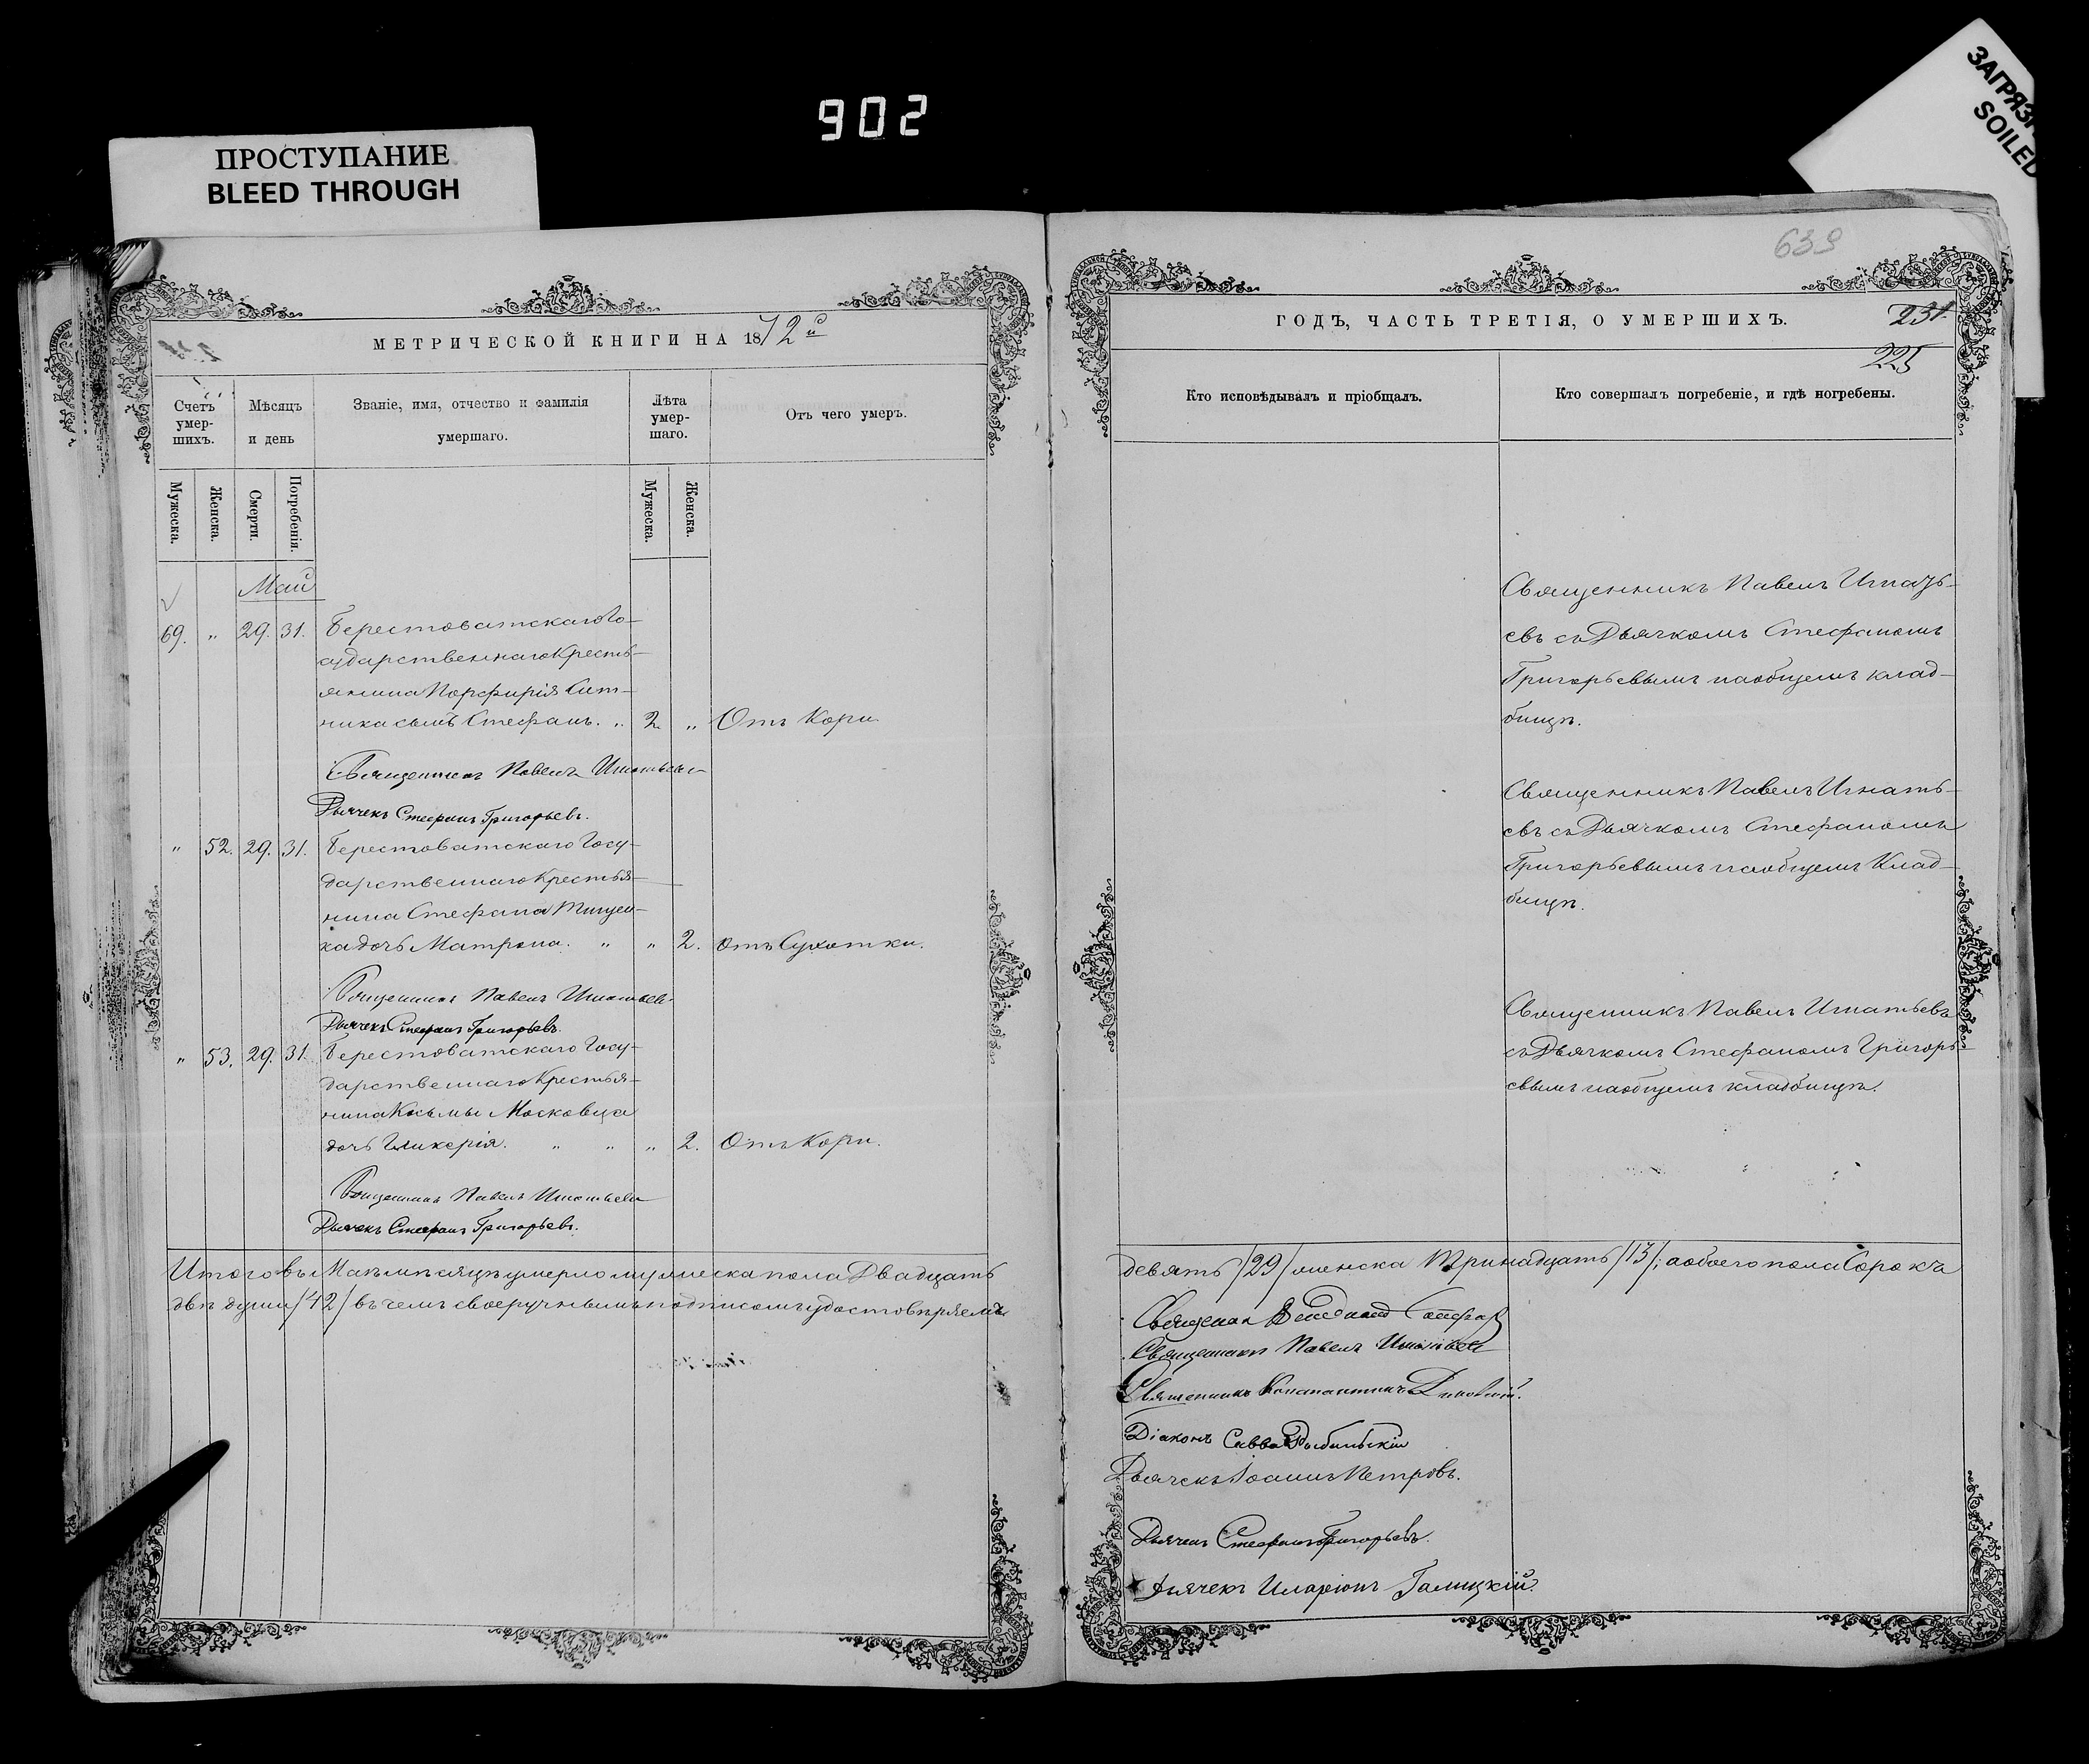 902
ПРОСТУПАНИЕ
BLEED THROUGH
ЗАГРЯЗН
SOILED
639
МЕТРИЧЕСКОЙ КНИГИ НА 1872й
Счетъ умер-шихъ.
Мѣсяцъ и день
Званіе, имя, отчество и фамилія умершаго.
Лѣта умер-шаго.
Отъ чего умеръ.
Мужеска.
Женска.
Смерти.
Погребенія.
Мужеска.
Женска.
Май
69. " 29. 31. Берестоватскаго Го-
сударственнаго Кресть-
янина Порфирія Сит-
ника сынъ Стефанъ. " 2 " Отъ Кори
Священникъ Павелъ Игнатьевъ
Дьячекъ Стефанъ Григорьевъ.
" 52. 29. 31. Берестоватскаго Госу-
дарственнаго Крестья-
нина Стефана Тищен-
ка дочь Матрона. " " 2. отъ Сухотки.
Священникъ Павелъ Игнатьевъ
Дьячекъ Стефанъ Григорьевъ.
" 53. 29. 31. Берестоватскаго Госу-
дарственнаго Крестья-
нина Косьмы Московца
дочь Гликерія. " " " 2. Отъ Кори.
Священникъ Павелъ Игнатьевъ
Дьячекъ Стефанъ Григорьевъ.
Итого въ Маѣ мѣсяцѣ умерло мужеска пола Двадцать
двѣ души /42/ въ чемъ своеручнымъ подписомъ удостовѣряемъ
ГОДЪ, ЧАСТЬ ТРЕТІЯ, О УМЕРШИХЪ.
231
225
Кто исповѣдывалъ и пріобщалъ.
Кто совершалъ погребеніе, и гдѣ погребены.
Священникъ Павелъ Игнать-
евъ съ Дьячкомъ Стефаномъ
Григорьевымъ на общемъ клад-
бищѣ.
Священникъ Павелъ Игнать-
евъ съ Дьячкомъ Стефаномъ
Григорьевымъ на общемъ Клад-
бищѣ.
Священникъ Павелъ Игнатьевъ
съ Дьячкомъ Стефаномъ Григорь-
евымъ на общемъ кладбищѣ.
девять /29/ женска тринадцать /13/; а обоего пола Сорокъ
Священникъ
Священникъ Павелъ Игнатьевъ
Священникъ Константинъ
Діаконъ Савва
Дьячекъ Іоаннъ Петровъ.
Дьячекъ Стефанъ Григорьевъ.
Дьячекъ Иларіонъ Галицкій.